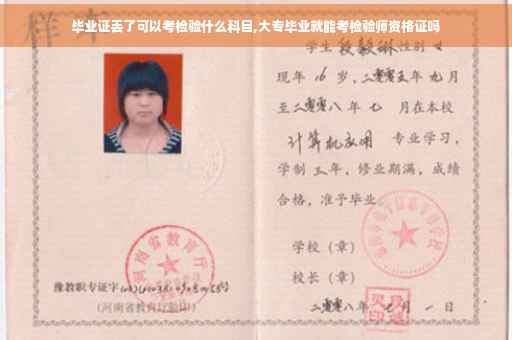 毕业证丢了可以考检验什么科目,大专毕业就能考检验师资格证吗
样本
学生段毅琳性别女
现年16岁,二零零五年九月
至二零零八年七月在本校
计算机应用 专业学习,
学制三年,修业期满,成绩
合格,准予毕业
学校(章)
校长(章)
二零零八年七月一日
河南省教育厅
豫教职专证字
号
(河南省教育厅验印)